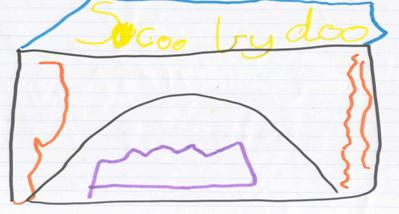 Scoo by doo